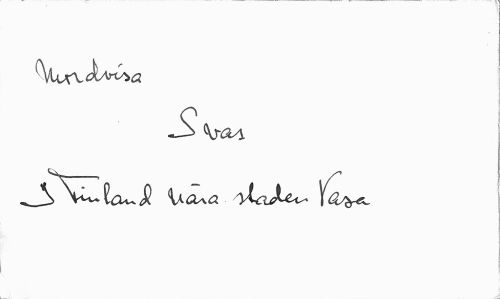 Mordvisa
Svar
I Finland nära staden Vasa